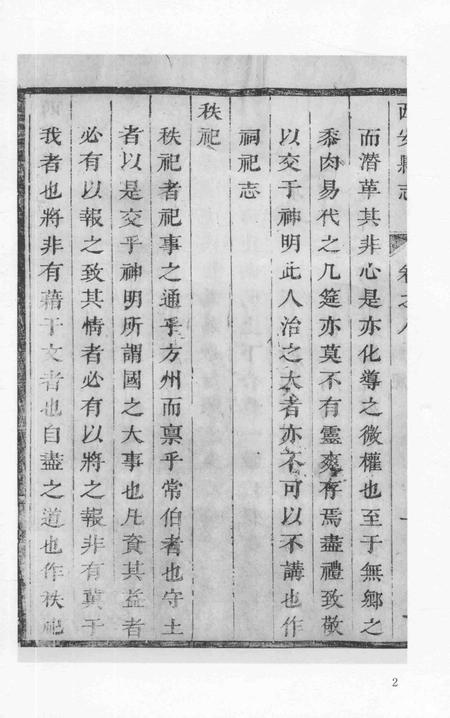 西安縣志 卷之八
而潜革其非心是亦化導之微權也至于無鄉之
黍肉易代之几筵亦莫不有靈爽存焉盡禮致敬
以交于神明此人治之大者亦不可以不講也作
祠祀志
秩祀
秩祀者祀事之通乎方州而禀乎常伯者也守土
者以是交乎神明所謂國之大事也凡資其益者
必有以報之致其情者必有以將之報非有冀于
我者也將非有藉于文者也自盡之道也作秩祀
2